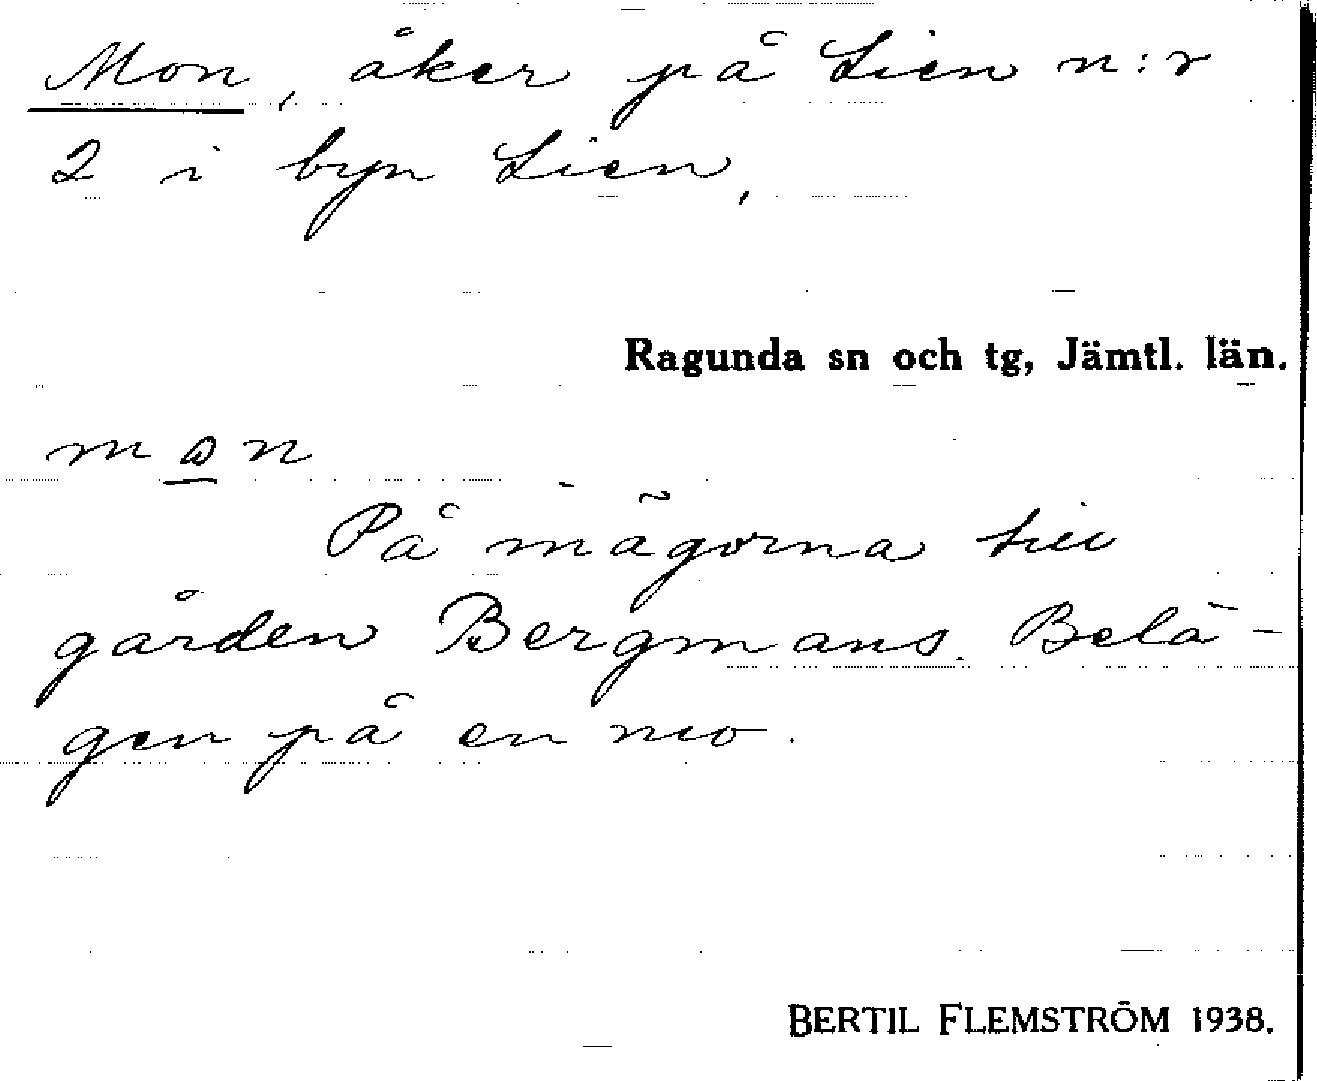 Mon, åker på Lien n:r
2 i byn Lien,
Ragunda sn och tg, Jämtl. län.
m o n
På mägorna till
gården Bergmans. Belä-
gen på en mo.
BERTIL FLEMSTRÖM 1938.